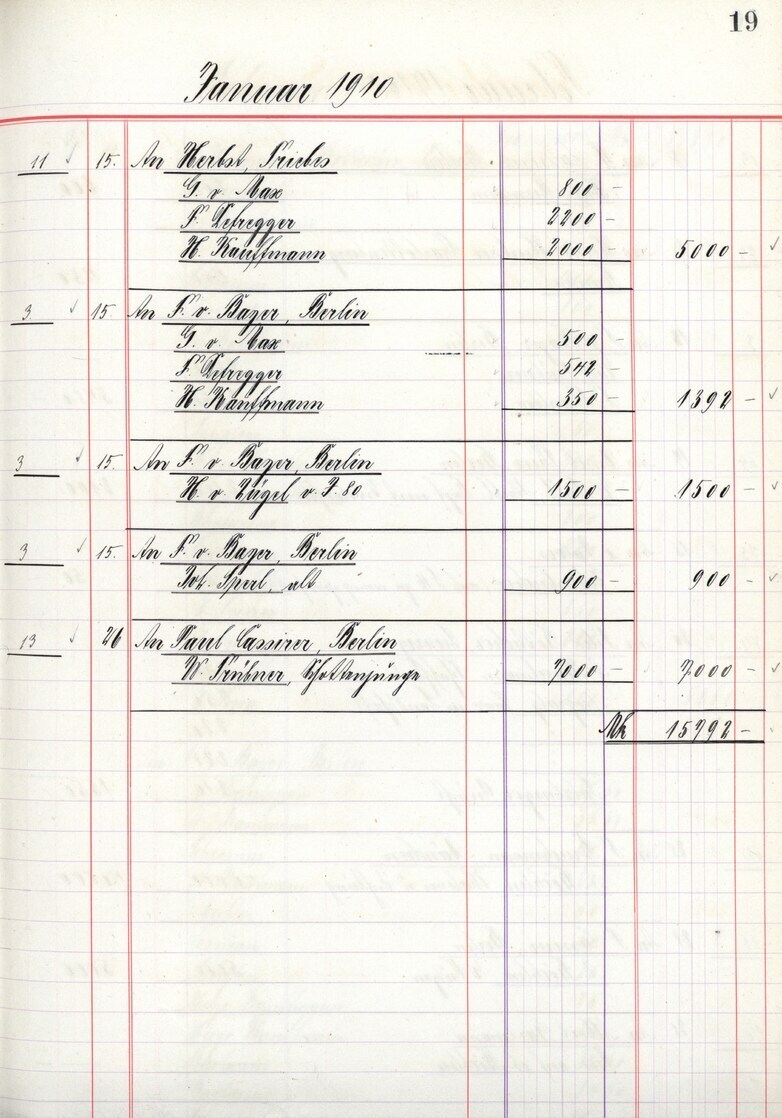 19
Januar 1910
11 15. An Herbst, Triebes
G. v. Max 800 –
F. Defregger 2200 –
H. Kauffmann 2000 – 5000 –
3 15. An F. v. Bayer, Berlin
G. v. Max 500 –
F. Defregger 542 –
H. Kauffmann 350 – 1392 –
3 15. An F. v. Bayer, Berlin
H. v. Zügel v. J. 80 1500 – 1500 –
3 15. An F. v. Bayer, Berlin
Joh. Sperl, alt 900 – 900 –
13 26 An Paul Cassirer, Berlin
W. Trübner, Schottenjunge 7000 – 7000 –
Mk 15792 –